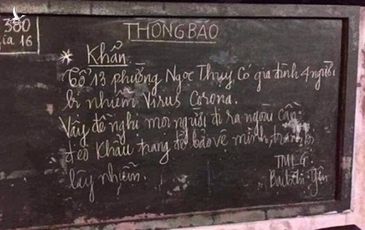 380
16
THÔNG BÁO
* Khẩn
Tổ 13 phường Ngọc Thụy Có gia đình 4 người
bị nhiễm Virus Corona.
Vậy đề nghị mọi người đi ra ngoài Cần
đeo Khẩu trang để bảo vệ mình, tránh bị
lây nhiễm.